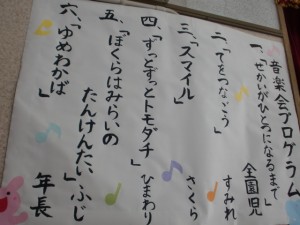 音楽会プログラム
一、「せかいがひとつになるまで」
全園児
二、「てをつなごう」
すみれ
三、「スマイル」
さくら
四、「ずっとずっとトモダチ」
ひまわり
五、「ぼくらはみらいの
たんけんたい」ふじ
六、「ゆめわかば」
年長